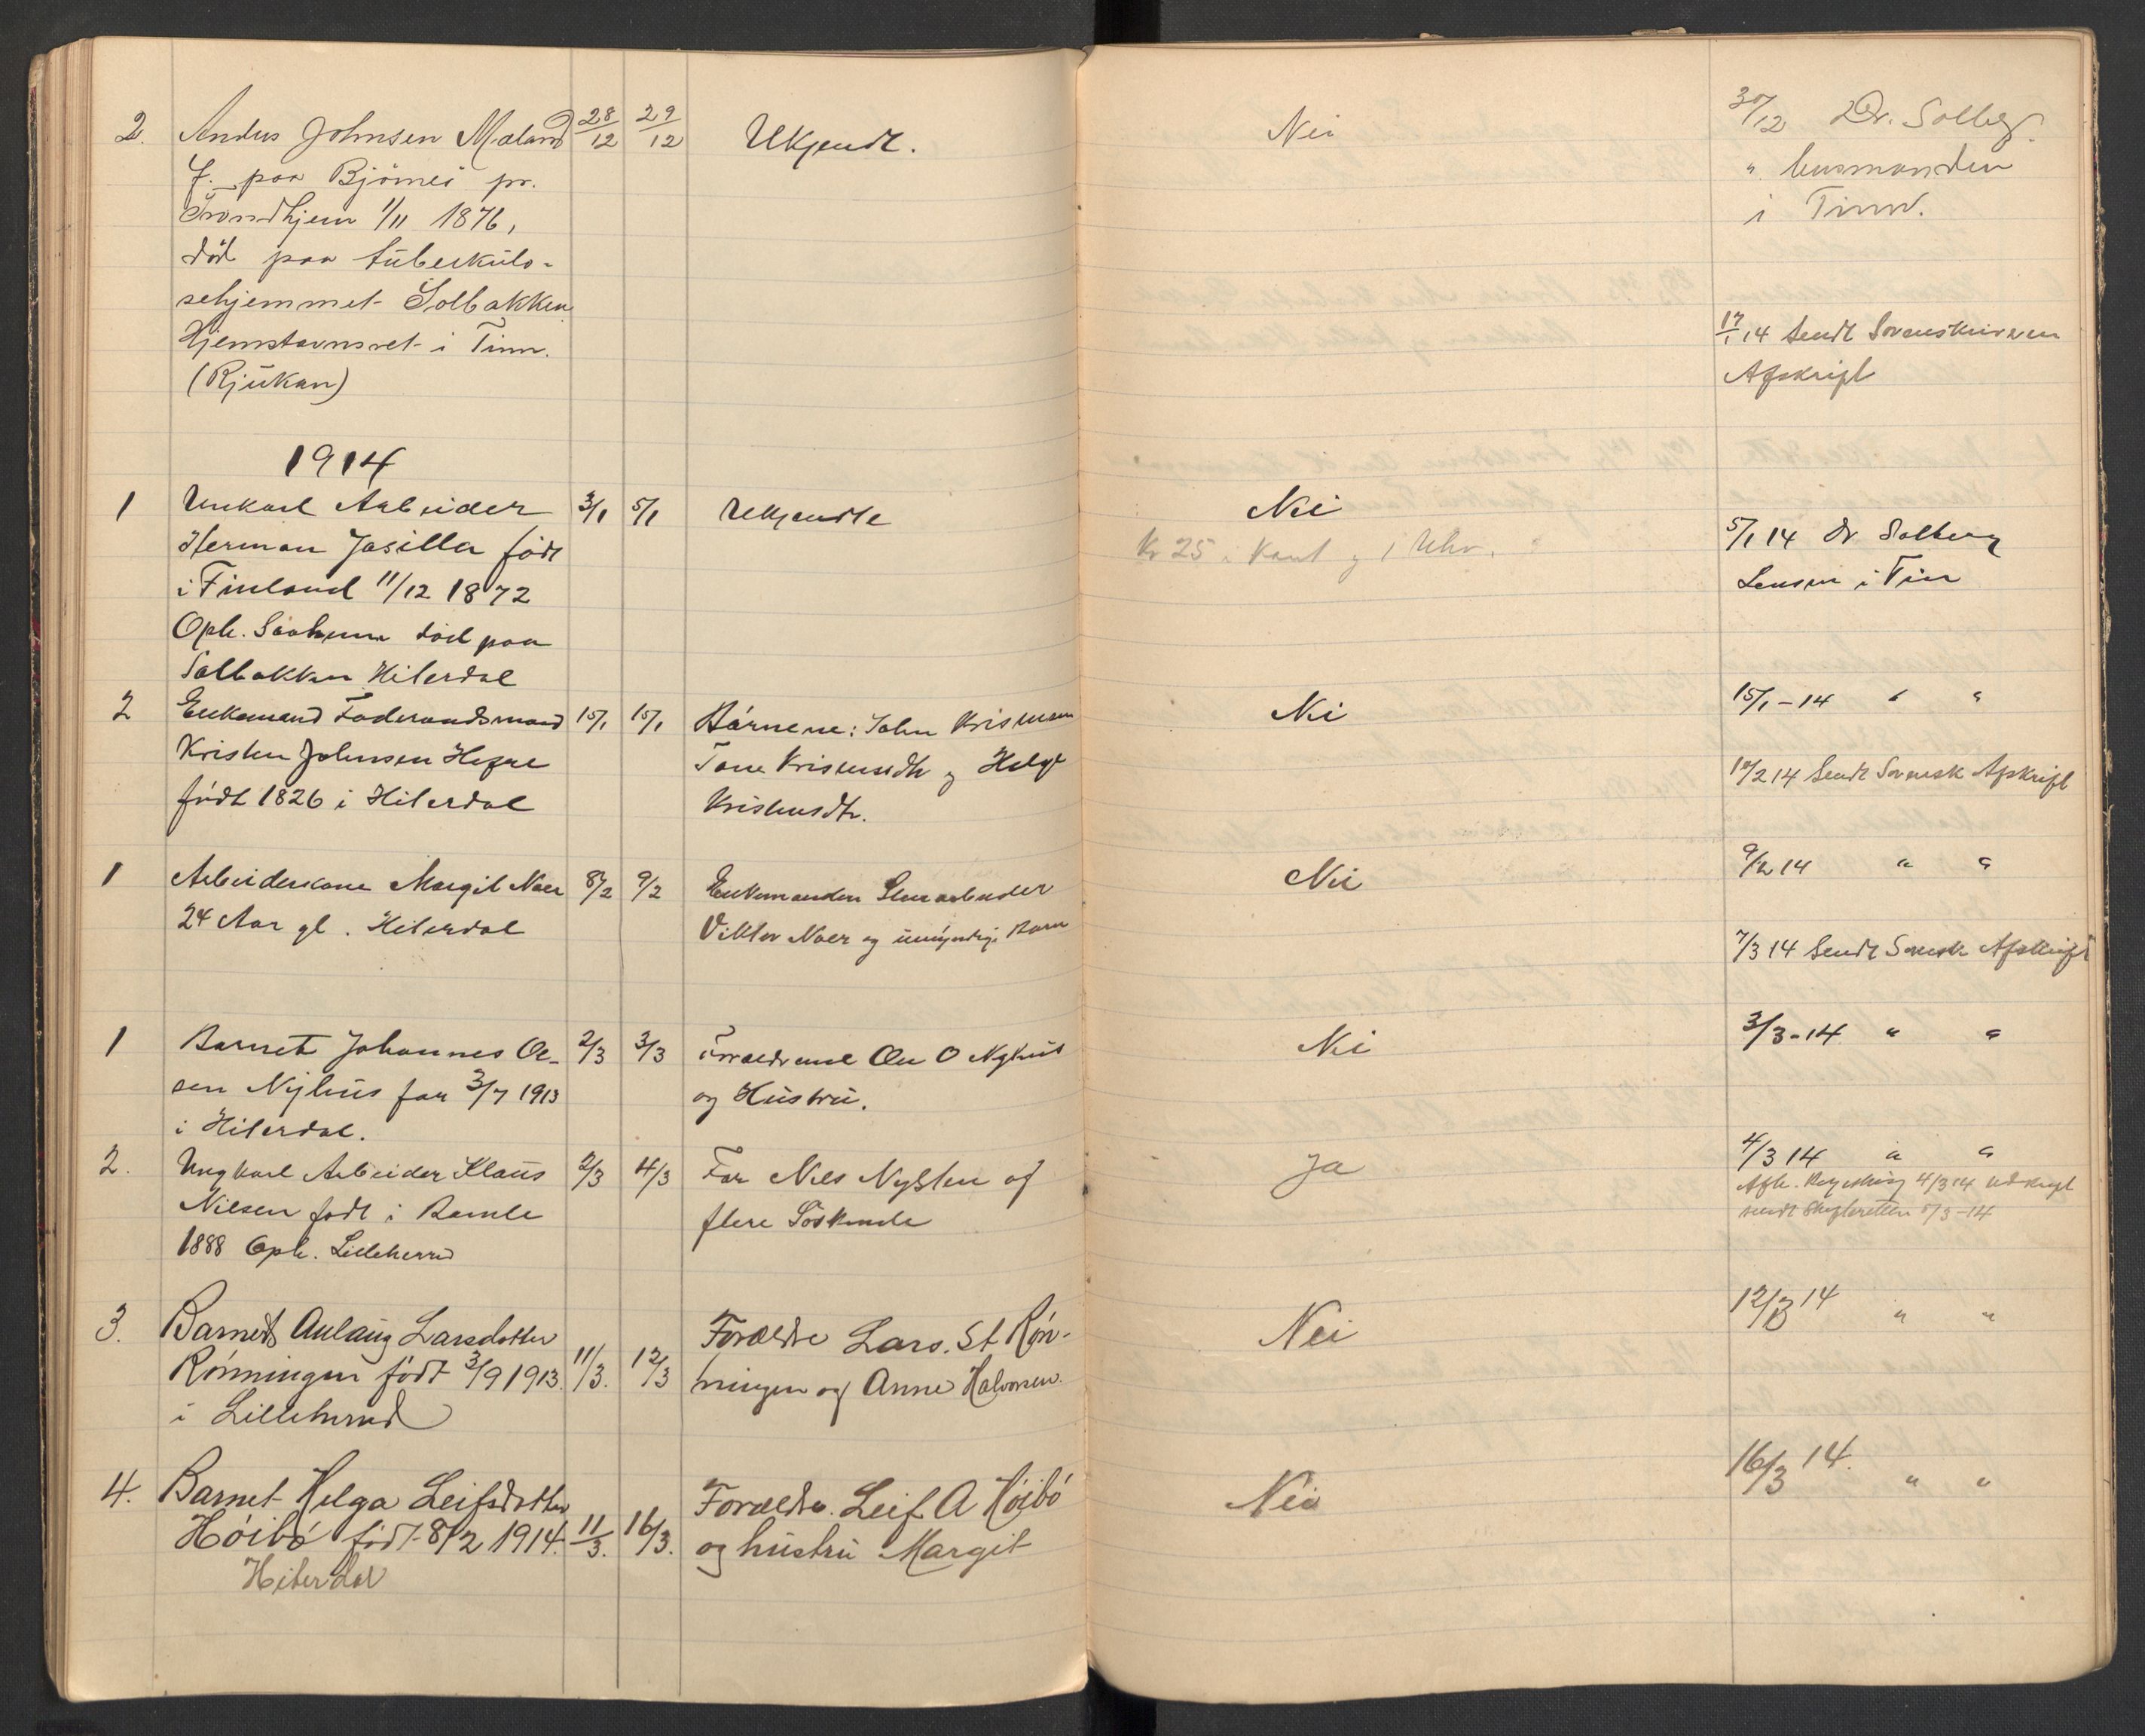 2. Anders Johnsen Maland 28/12 29/12 Ukjendt. Nei 30/12 Dr. Solberg.
f. paa Björnes pr. " lensmanden
Trondhjem 1/11 1876, i Tinn.
död paa tüberkülo-
sehjemmet Solbakken
Hjemstavnsret i Tinn. 17/1 14 Sendt Sorenskriveren
(Rjükan) Afskrift
1914
1 Unkarl Arbeider 3/1 5/1 Ukjendte Nei 5/1 14 Dr Solberg
Herman Jasilla födt Kr 25 i Kont og 1 Uhr. Lensm i Tin
i Finland 11/12 1872
Oph. Saaheim död paa
Solbakken Hiterdal
2 Enkemand Föderaadsmand 15/1 15/1 Börnene: John Kristensen Nei 15/1-14 " "
Kristen Johnsen Hegne Tone Kristensdtr og Helge 10/2 14 Sendt Sorensk Afskrift
födt 1826 i Hiterdal Kristensdtr.
1 Arbeiderkone Margit Noer 8/2 9/2 Enkemanden Slusearbeider Nei 9/2 14 " "
24 Aar gl. Hiterdal Viktor Noer og ümyndige Barn
7/3 14 Sendt Sorensk Afskrift
1 Barnet Johannes Ol- 2/3 3/3 Forældrene Ole O Nyhus Nei 3/3-14 " "
sen Nyhüs fær 3/7 1913 og Hüstrü.
i Hiterdal.
2. Ungkarl Arbeider Klaüs 2/3 4/3 Far Nils Nysten og Ja 4/3 14 " "
Nilsen födt i Bamle flere Söskende Afh. Registrering 4/3 14 Udskrift
1888 Oph. Lilleherred sendt Skifteretten 5/3-14
3. Barnet Aslaug Larsdotter Forældre Lars. St Rön- Nei 12/3 14 " "
Rönningen födt 3/9 1913. 11/3. 12/3 ningen og Anne Halvorsen.
i Lilleherred
4. Barnet Helga Leifsdotter Forældre. Leif A Höibö Nei 16/3 14. " "
Höibö födt 8/2 1914. 11/3. 16/3. og hüstrü Margit
Hiterdal